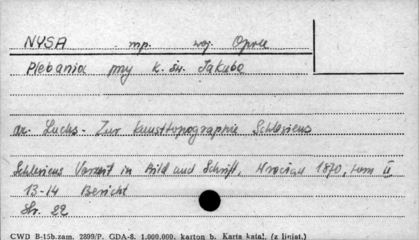 NYSA mp. woj. Opole
Plebania przy k. św. Jakuba
ar. Luchs - Zur Kunsttopographie Schlesiens
Schlesiens Vorzeit in Bild und Schrift, Wrocław 1870, tom II
13-14 Bericht
Str. 22
CWD B-15b.zam. 2899/P. GDA-8. 1.000.000. karton b. Karta katal. (z liniat.)